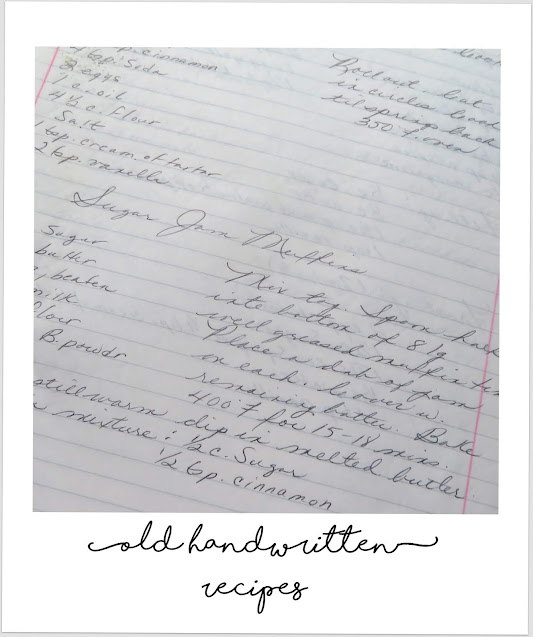 p. cinnamon
tsp. Soda
eggs
1 c. oil
4 1/2 c. flour
Salt
1 tsp. cream of tartar
2 tsp. vanilla
Roll out - cut
in circles bake
til springs back
350 F. oven
Sugar Jam Muffins
Sugar
butter
, beaten
milk
flour
B. powdr
Mix tog. Spoon half
into bottom of 8 lg
well greased muffin tin
Place a dab of jam
in each. Cover w.
remaining batter. Bake
400 F for 15-18 mins.
still warm dip in melted butter.
mixture: 1/2 c. Sugar
1/2 tsp. cinnamon
old handwritten
recipes